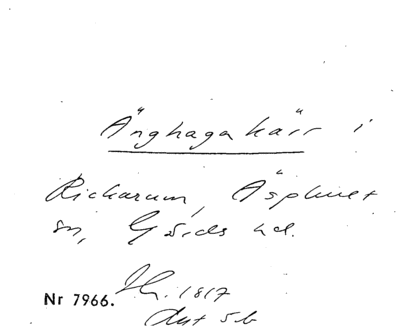 Änghagakärr i
Rickarum, Äsphult
sn, Gärds hd.
Nr 7966. Sk. 1817
Akt 5b